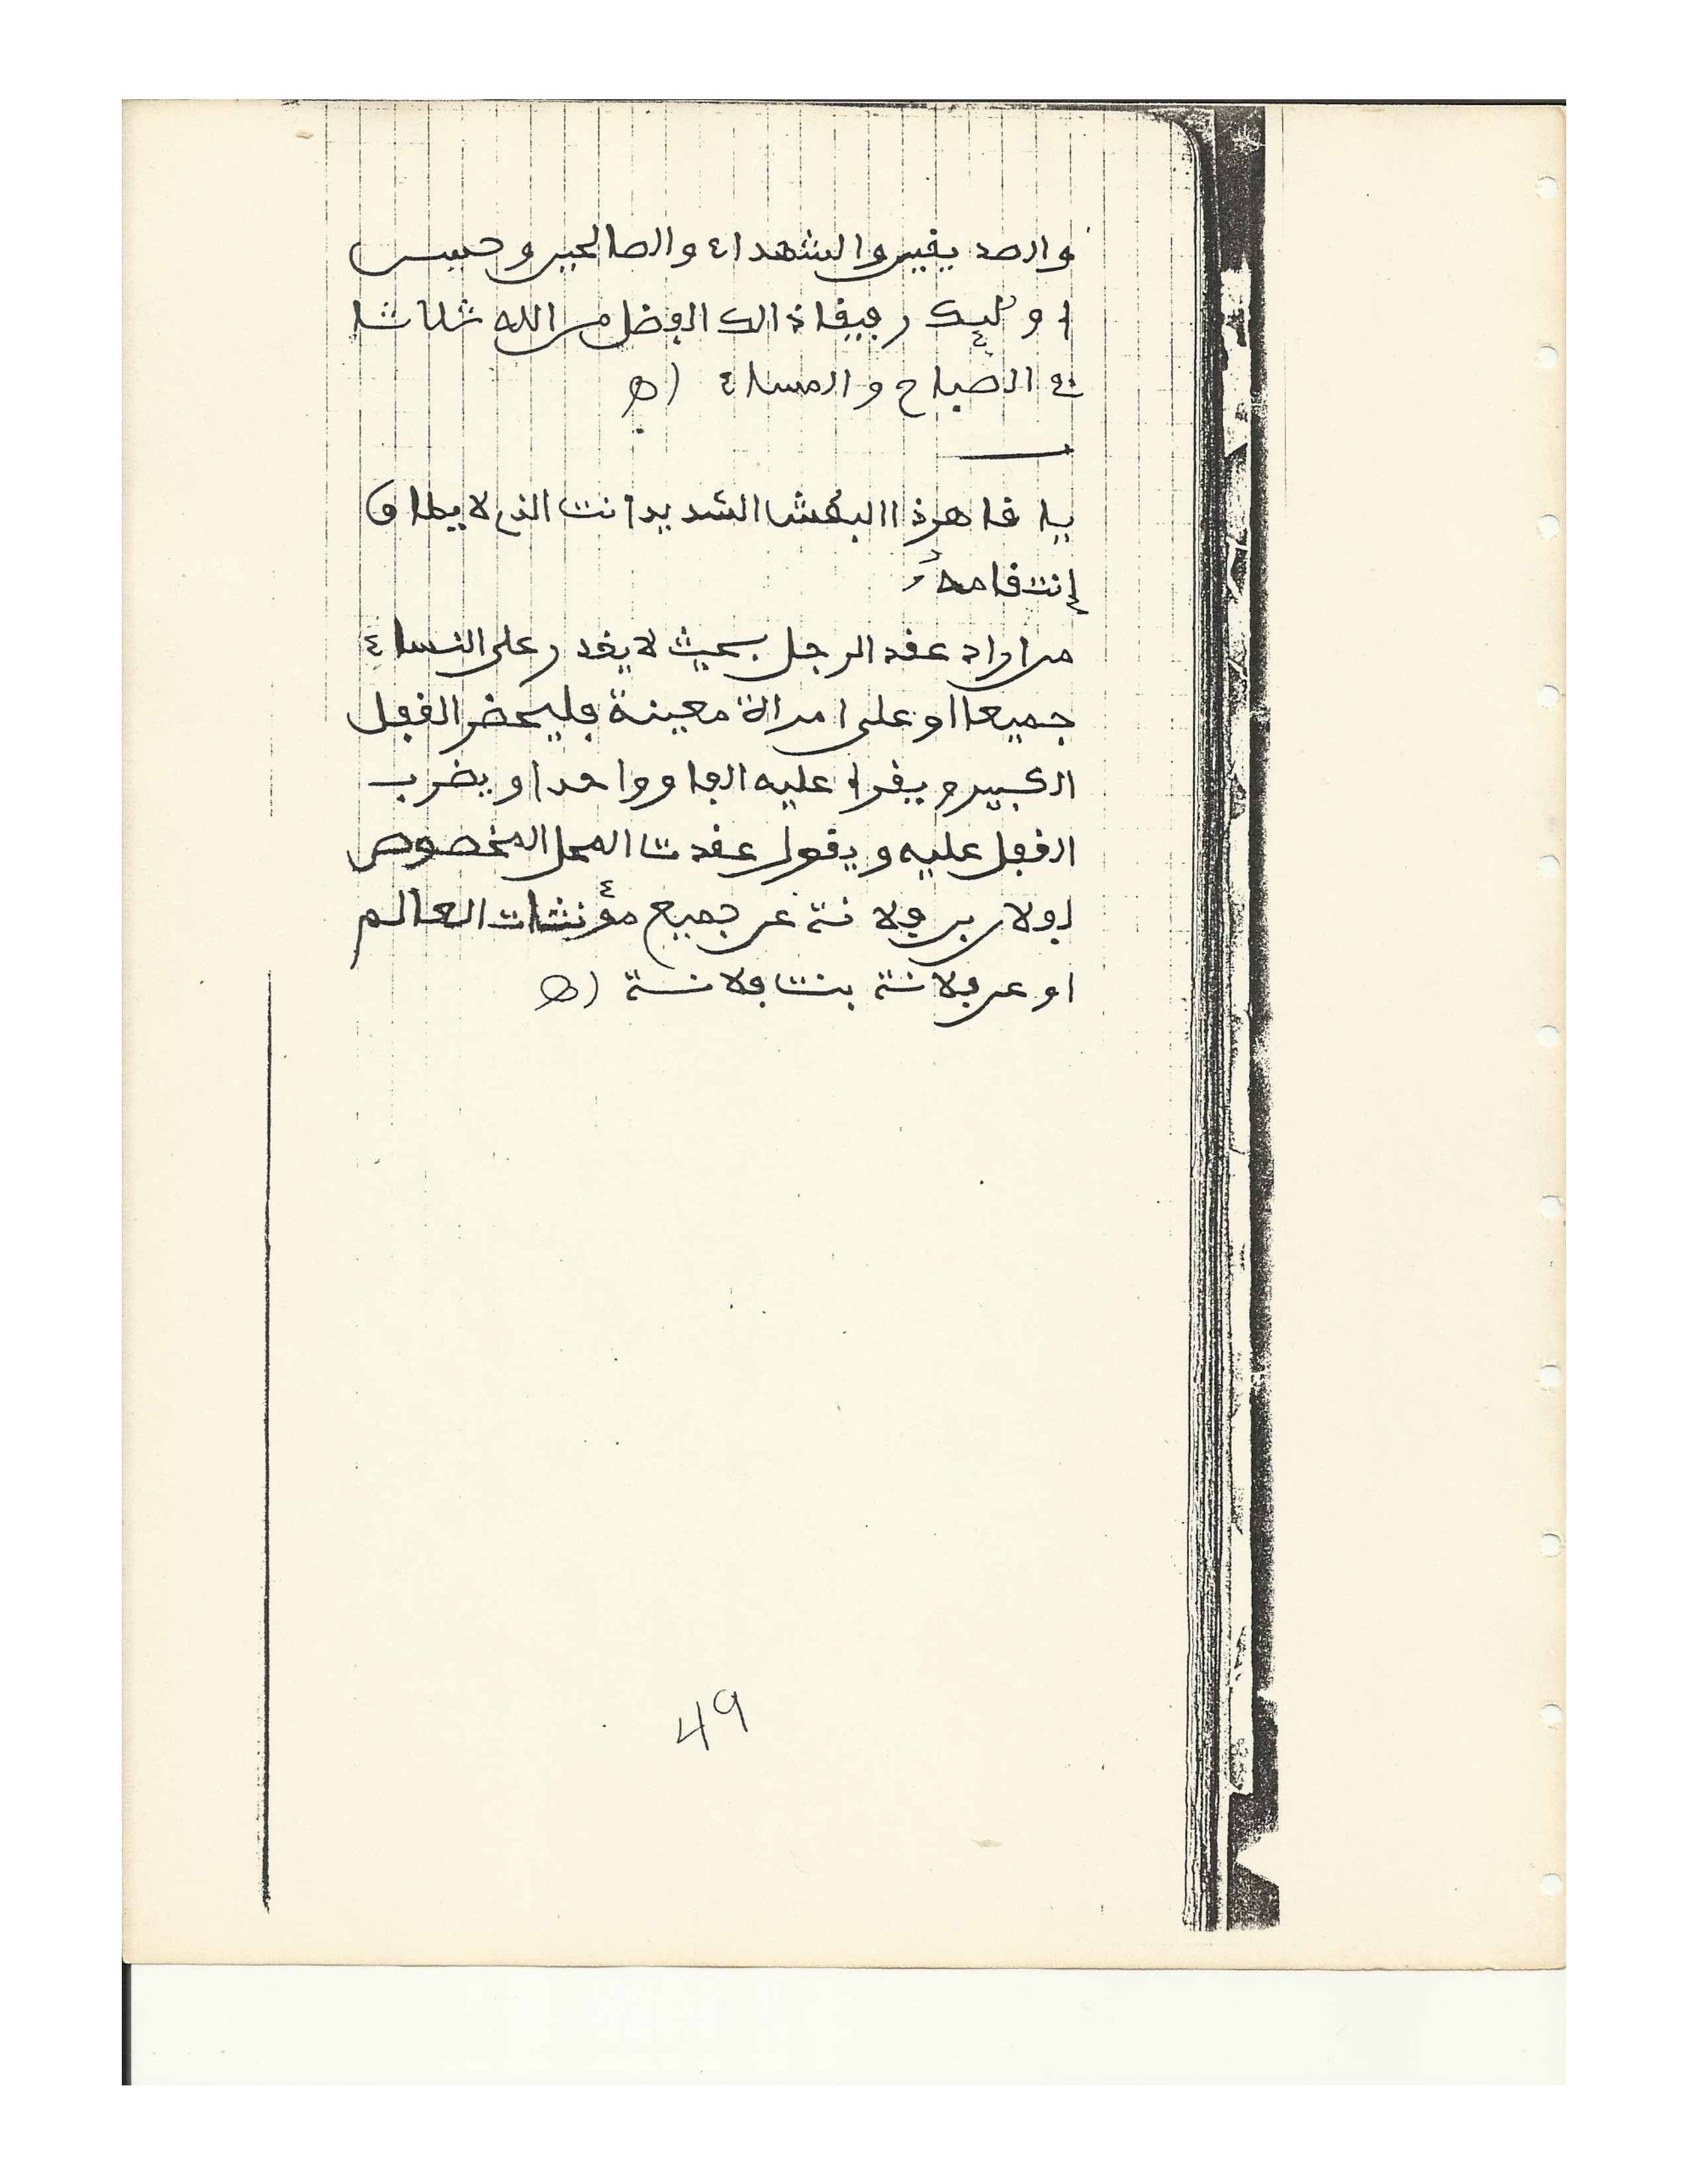 والصديقين والشهداء والصالحين وحسن
أولئك رفيقا ذالك الفضل من الله ثلاثا
في الصباح والمساء اه
يا قاهر ذا البطش الشديد أنت الذي لا يطاق
إنتقامه
من اراد عقد الرجل بحيث لا يقدر على النساء
جميعا او على امرأة معينة فليحضر القفل
الكبير ويقرأ عليه الفا وواحدا ويضرب
القفل عليه ويقول عقدت المحل المخصوص
لفلان بن فلانة عن جميع مؤنثات العالم
او عن فلانة بنت فلانة اه
49